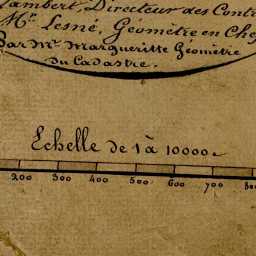 Lambert, Directeur des Contri
Mr. Lesné, Géomètre en Chef
Par Mr. Margueritte Géomètre
du Cadastre.
Echelle de 1 à 10000.
200 300 400 500 600 700 800